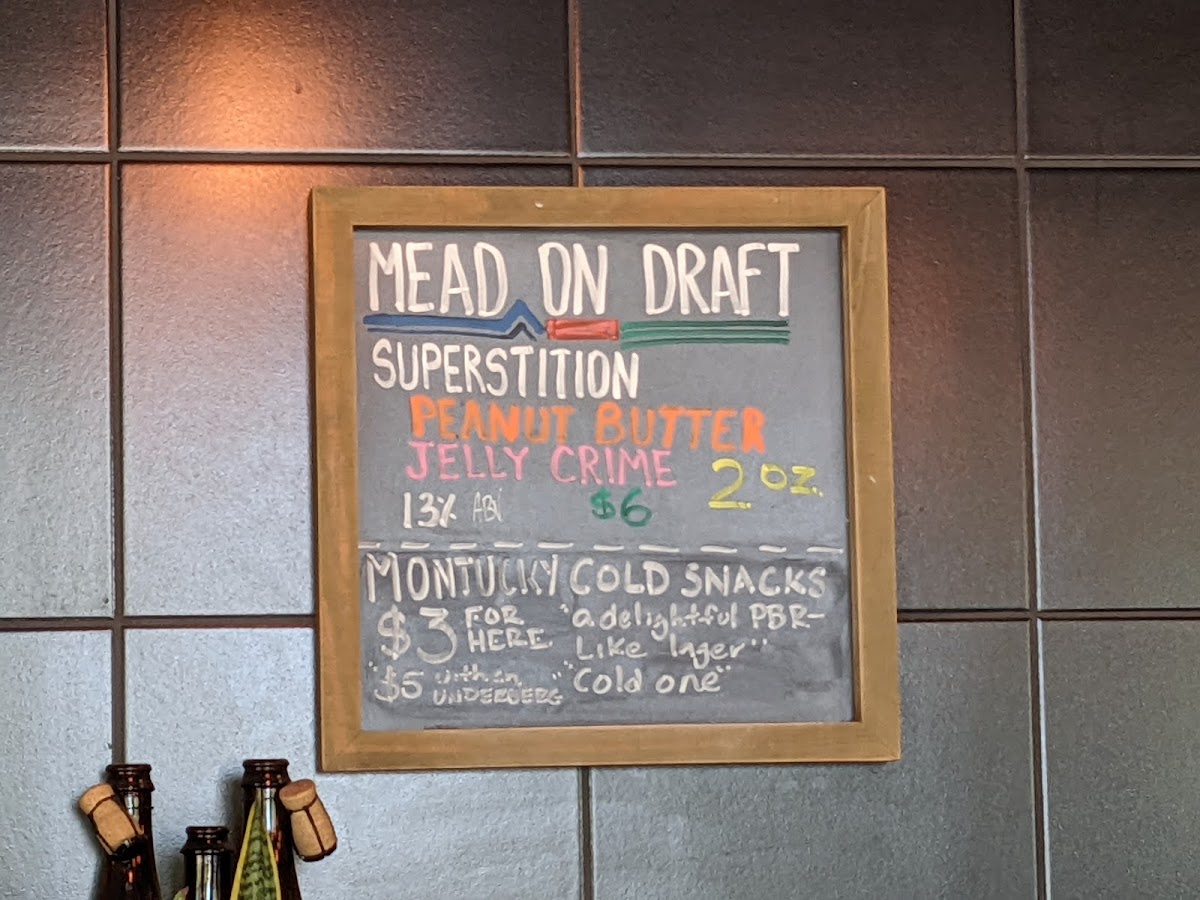 MEAD ON DRAFT
SUPERSTITION
PEANUT BUTTER
JELLY CRIME
2 oz.
13% ABV $6
MONTUCKY COLD SNACKS
$3 FOR HERE "a delightful PBR-
Like lager"
"$5 with an UNDERBERG" "Cold one"